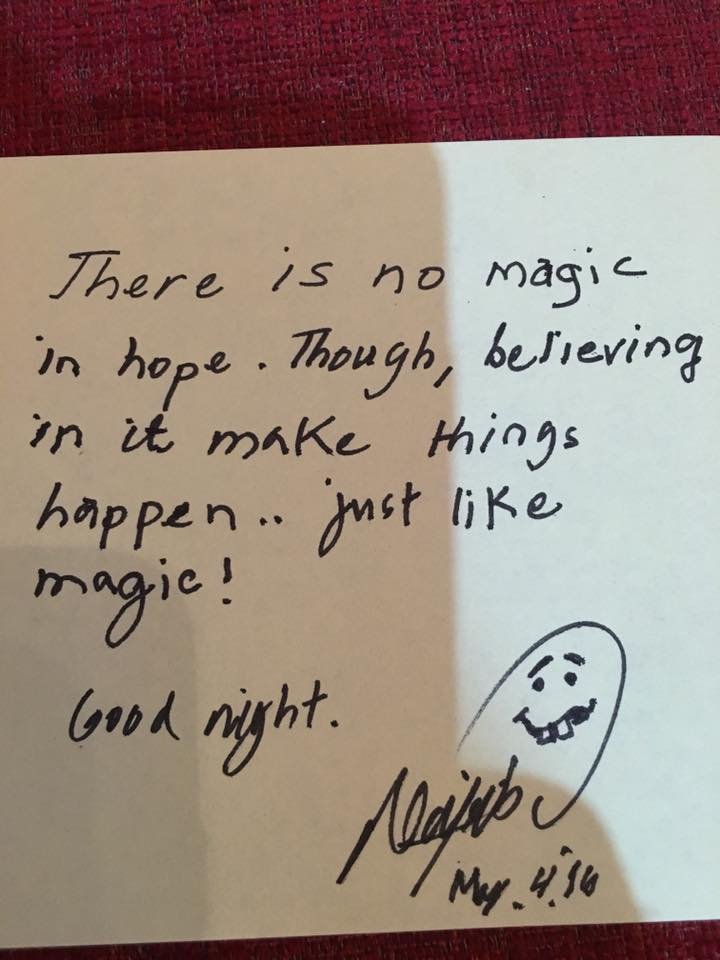 There is no magic
in hope. Though, believing
in it make things
happen.. just like
magic!
Good night.